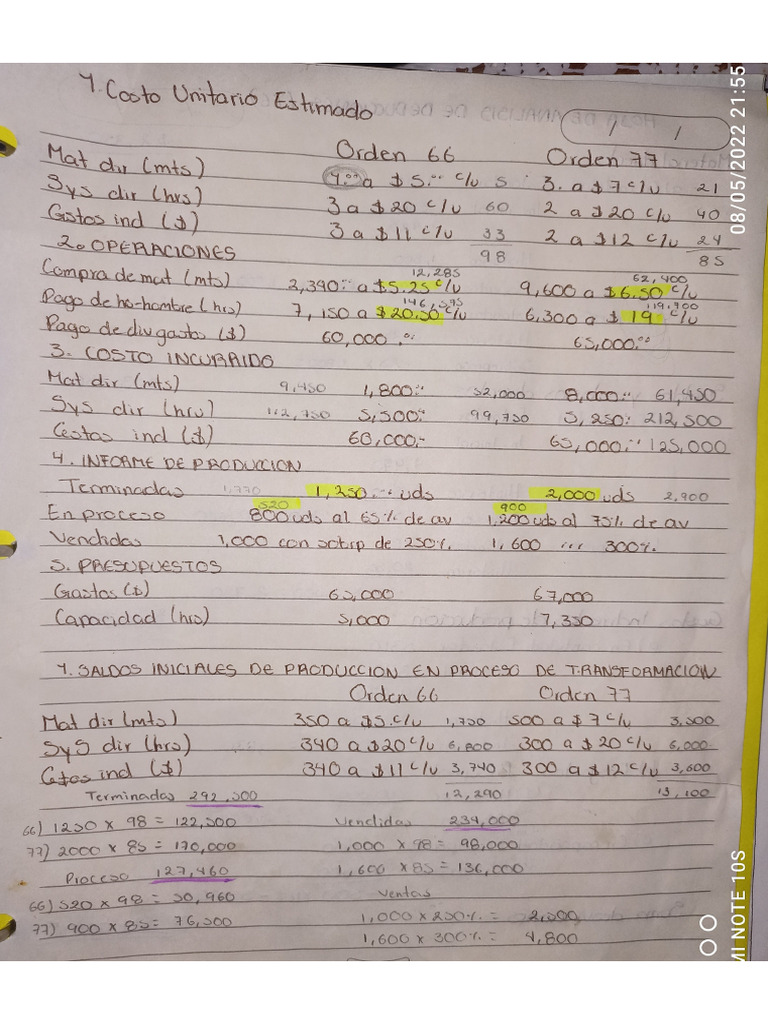 1. Costo Unitario Estimado
Orden 66 Orden 77
Mat dir (mts) a $5.00 c/u 5 3. a $7 c/u 21
Sys dir (hrs) 3 a $20 c/u 60 2 a $20 c/u 40
Gstos ind ($) 3 a $11 c/u 33 2 a $12 c/u 24
98 85
2. OPERACIONES
12,285 62,400
Compra de mat (mts) 2,340.- a $5.25 c/u 9,600 a $6.50 c/u
146,575 119,700
Pago de ho-hombre (hrs) 7,150 a $20.50 c/u 6,300 a $ 19 c/u
Pago de div gastos ($) 60,000.00 65,000.00
3. COSTO INCURRIDO
Mat dir (mts) 9,450 1,800.- 52,000 8,000.- 61,450
Sys dir (hrs) 112,750 5,500.- 99,750 5,250. 212,500
Gstos ind ($) 60,000.- 65,000.- 125,000
4. INFORME DE PRODUCCION
Terminadas 1,770 1,250.- uds 2,000 uds 2,900
520 900
En proceso 800 uds al 65% de av 1,200 uds al 75% de av
Vendidas 1,000 con sobrp de 250% 1,600 ... 300%
5. PRESUPUESTOS
Gastos ($) 65,000 67,000
Capacidad (hrs) 5,000 7,350
1. SALDOS INICIALES DE PRODUCCION EN PROCESO DE TRANSFORMACION
Orden 66 Orden 77
Mat dir (mts) 350 a $5 c/u 1,750 500 a $7 c/u 3,500
SyS dir (hrs) 340 a $20 c/u 6,800 300 a $20 c/u 6,000
Gstos ind ($) 340 a $11 c/u 3,740 300 a $12 c/u 3,600
Terminadas 292,500 12,290 13,100
66) 1250 x 98 = 122,500 Vendidas 234,000
77) 2000 x 85 = 170,000 1,000 x 98 = 98,000
Proceso 127,460 1,600 x 85 = 136,000
66) 520 x 98 = 50,960 Ventas
77) 900 x 85 = 76,500 1,000 x 250% = 2,500
1,600 x 300% = 4,800
08/05/2022 21:55
MI NOTE 10S